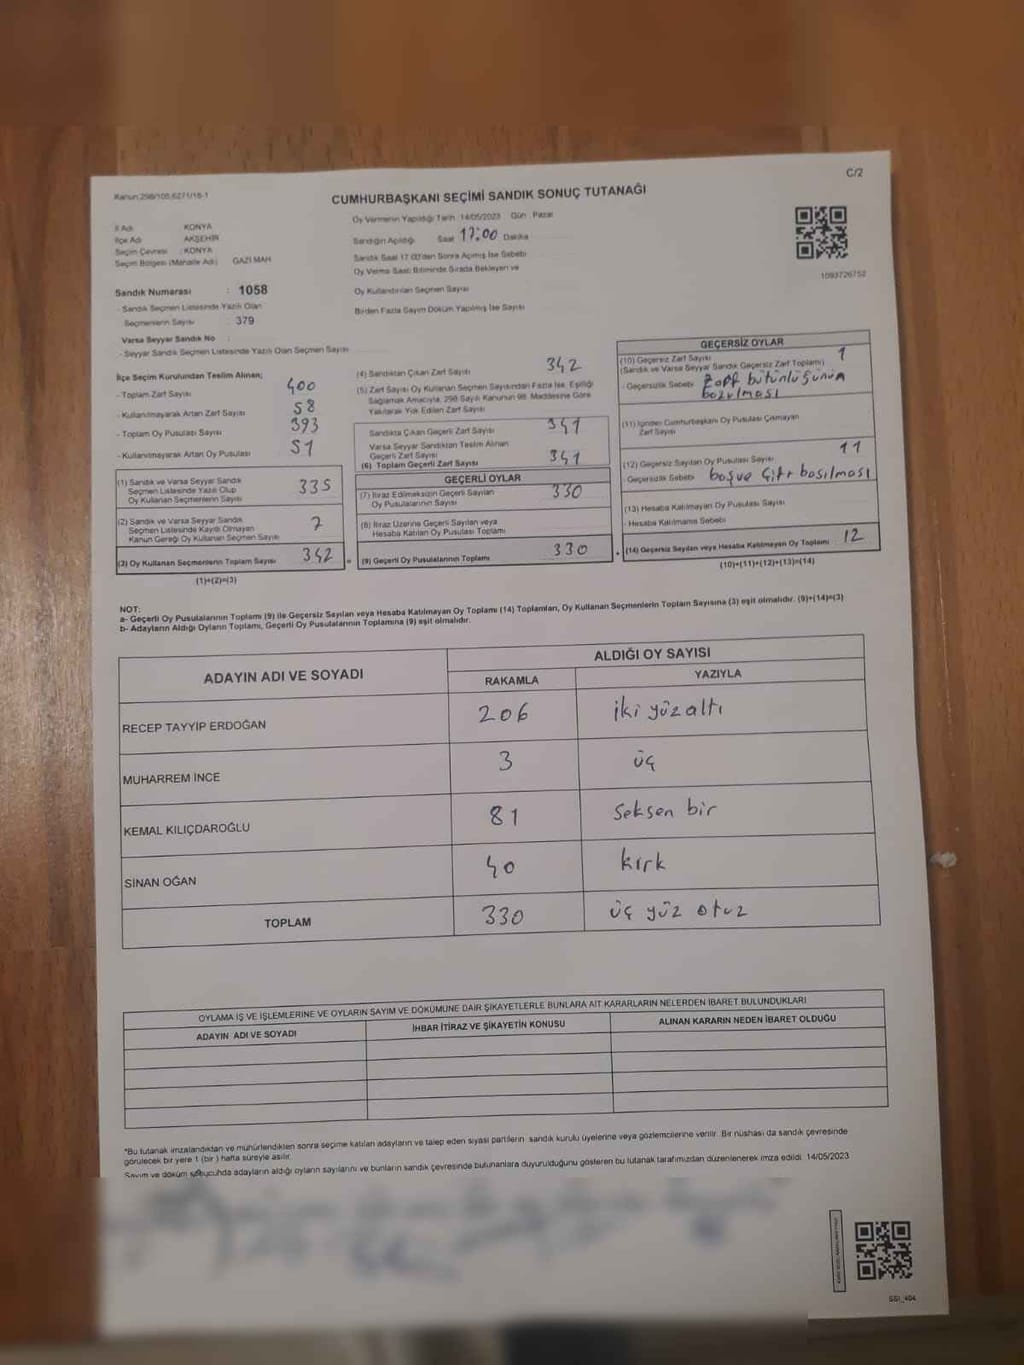 C/2
Kanun:298/105,6271/16-1
CUMHURBAŞKANI SEÇİMİ SANDIK SONUÇ TUTANAĞI
Oy Vermenin Yapıldığı Tarih :14/05/2023 Gün : Pazar
İl Adı : KONYA
İlçe Adı : AKŞEHİR
Seçim Çevresi : KONYA
Seçim Bölgesi (Mahalle Adı) : GAZİ MAH
Sandığın Açıldığı Saat 17:00 Dakika
Sandık Saat 17.00'den Sonra Açılmış İse Sebebi
Oy Verme Saati Bitiminde Sırada Bekleyen ve
Oy Kullandırılan Seçmen Sayısı
Birden Fazla Sayım Döküm Yapılmış İse Sayısı
1093726752
Sandık Numarası : 1058
- Sandık Seçmen Listesinde Yazılı Olan
Seçmenlerin Sayısı : 379
Varsa Seyyar Sandık No :
- Seyyar Sandık Seçmen Listesinde Yazılı Olan Seçmen Sayısı
İlçe Seçim Kurulundan Teslim Alınan;
- Toplam Zarf Sayısı 400
- Kullanılmayarak Artan Zarf Sayısı 58
- Toplam Oy Pusulası Sayısı 393
- Kullanılmayarak Artan Oy Pusulası 51
(1) Sandık ve Varsa Seyyar Sandık
Seçmen Listesinde Yazılı Olup
Oy Kullanan Seçmenlerin Sayısı 335
(2) Sandık ve Varsa Seyyar Sandık
Seçmen Listesinde Kayıtlı Olmayan
Kanun Gereği Oy Kullanan Seçmen Sayısı 7
(3) Oy Kullanan Seçmenlerin Toplam Sayısı 342
(1)+(2)=(3)
(4) Sandıktan Çıkan Zarf Sayısı 342
(5) Zarf Sayısı Oy Kullanan Seçmen Sayısından Fazla İse, Eşitliği
Sağlamak Amacıyla, 298 Sayılı Kanunun 98. Maddesine Göre
Yakılarak Yok Edilen Zarf Sayısı
Sandıkta Çıkan Geçerli Zarf Sayısı 341
Varsa Seyyar Sandıktan Teslim Alınan
Geçerli Zarf Sayısı
(6) Toplam Geçerli Zarf Sayısı 341
GEÇERLİ OYLAR
(7) İtiraz Edilmeksizin Geçerli Sayılan
Oy Pusulalarının Sayısı 330
(8) İtiraz Üzerine Geçerli Sayılan veya
Hesaba Katılan Oy Pusulaları Toplamı
= (9) Geçerli Oy Pusulalarının Toplamı 330
GEÇERSİZ OYLAR
(10) Geçersiz Zarf Sayısı
(Sandık ve Varsa Seyyar Sandık Geçersiz Zarf Toplamı) 1
- Geçersizlik Sebebi Zarf bütünlüğünün
bozulması
(11) İçinden Cumhurbaşkanı Oy Pusulası Çıkmayan
Zarf Sayısı
(12) Geçersiz Sayılan Oy Pusulası Sayısı 11
- Geçersizlik Sebebi boş ve çift basılması
(13) Hesaba Katılmayan Oy Pusulası Sayısı
- Hesaba Katılmama Sebebi
+ (14) Geçersiz Sayılan veya Hesaba Katılmayan Oy Toplamı 12
(10)+(11)+(12)+(13)=(14)
NOT:
a- Geçerli Oy Pusulalarının Toplamı (9) ile Geçersiz Sayılan veya Hesaba Katılmayan Oy Toplamı (14) Toplamları, Oy Kullanan Seçmenlerin Toplam Sayısına (3) eşit olmalıdır. (9)+(14)=(3)
b- Adayların Aldığı Oyların Toplamı, Geçerli Oy Pusulalarının Toplamına (9) eşit olmalıdır.
ADAYIN ADI VE SOYADI
ALDIĞI OY SAYISI
RAKAMLA YAZIYLA
RECEP TAYYİP ERDOĞAN 206 iki yüz altı
MUHARREM İNCE 3 üç
KEMAL KILIÇDAROĞLU 81 Seksen bir
SİNAN OĞAN 40 kırk
TOPLAM 330 üç yüz otuz
OYLAMA İŞ VE İŞLEMLERİNE VE OYLARIN SAYIM VE DÖKÜMÜNE DAİR ŞİKAYETLERLE BUNLARA AİT KARARLARIN NELERDEN İBARET BULUNDUKLARI
ADAYIN ADI VE SOYADI İHBAR İTİRAZ VE ŞİKAYETİN KONUSU ALINAN KARARIN NEDEN İBARET OLDUĞU
*Bu tutanak imzalandıktan ve mühürlendikten sonra seçime katılan adayların ve talep eden siyasi partilerin sandık kurulu üyelerine veya gözlemcilerine verilir. Bir nüshası da sandık çevresinde
görülecek bir yere 1 (bir) hafta süreyle asılır.
Sayım ve döküm sonucunda adayların aldığı oyların sayılarını ve bunların sandık çevresinde bulunanlara duyurulduğunu gösteren bu tutanak tarafımızdan düzenlenerek imza edildi. 14/05/2023
SSI_404